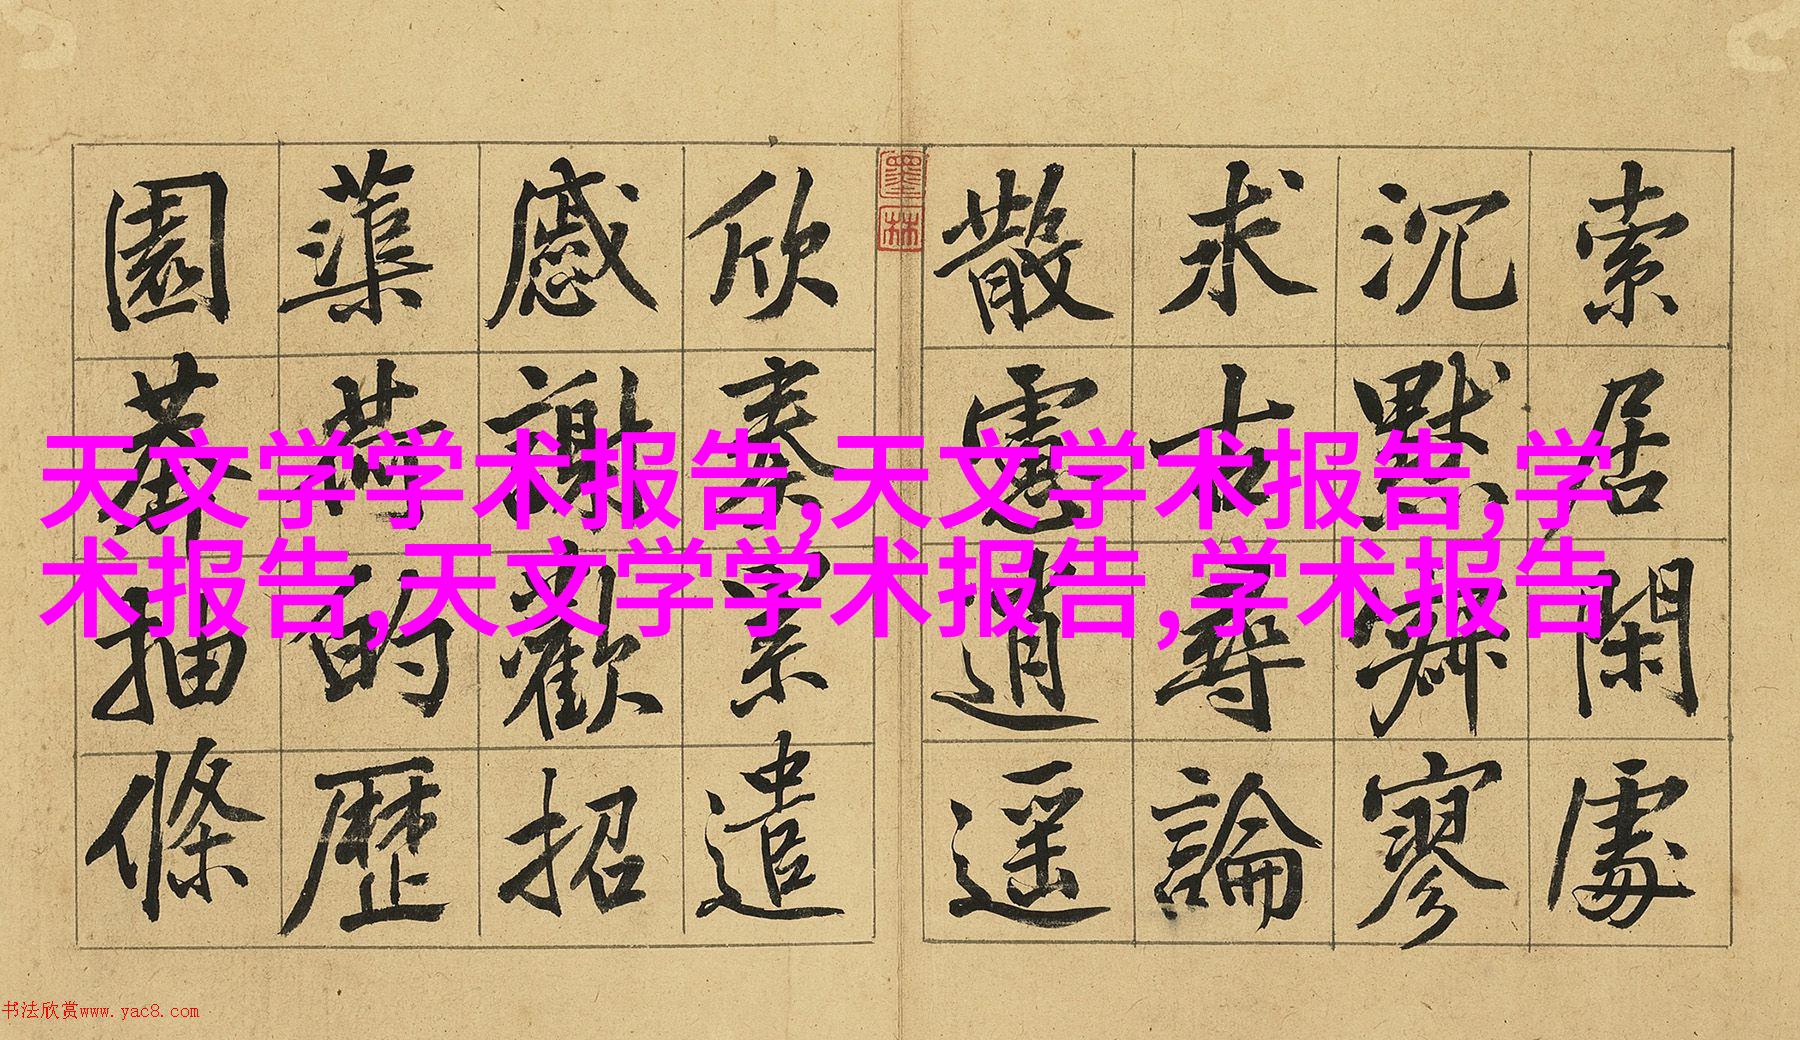 索居閑處
沉默寂寥
求古尋論
散慮逍遥
欣奏累遣
慼謝歡招
蕖荷的歷
園莽抽條
墨林
天文学学术报告,天文学术报告,学
术报告,天文学学术报告,学术报告
书法欣赏www.yac8.com